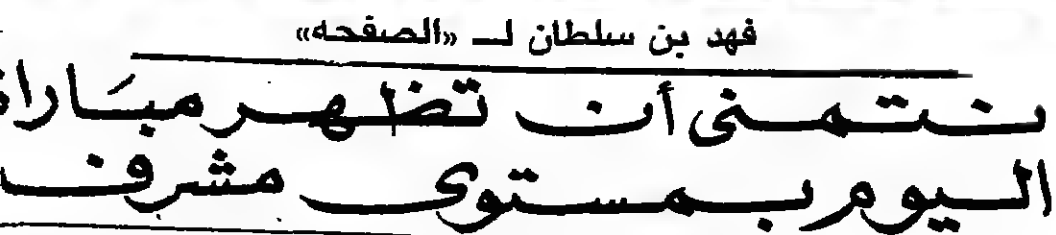 فهد بن سلطان لـ «الصفحه»
نتمنى أن تظهر مباراة
اليوم بمستوى مشرف